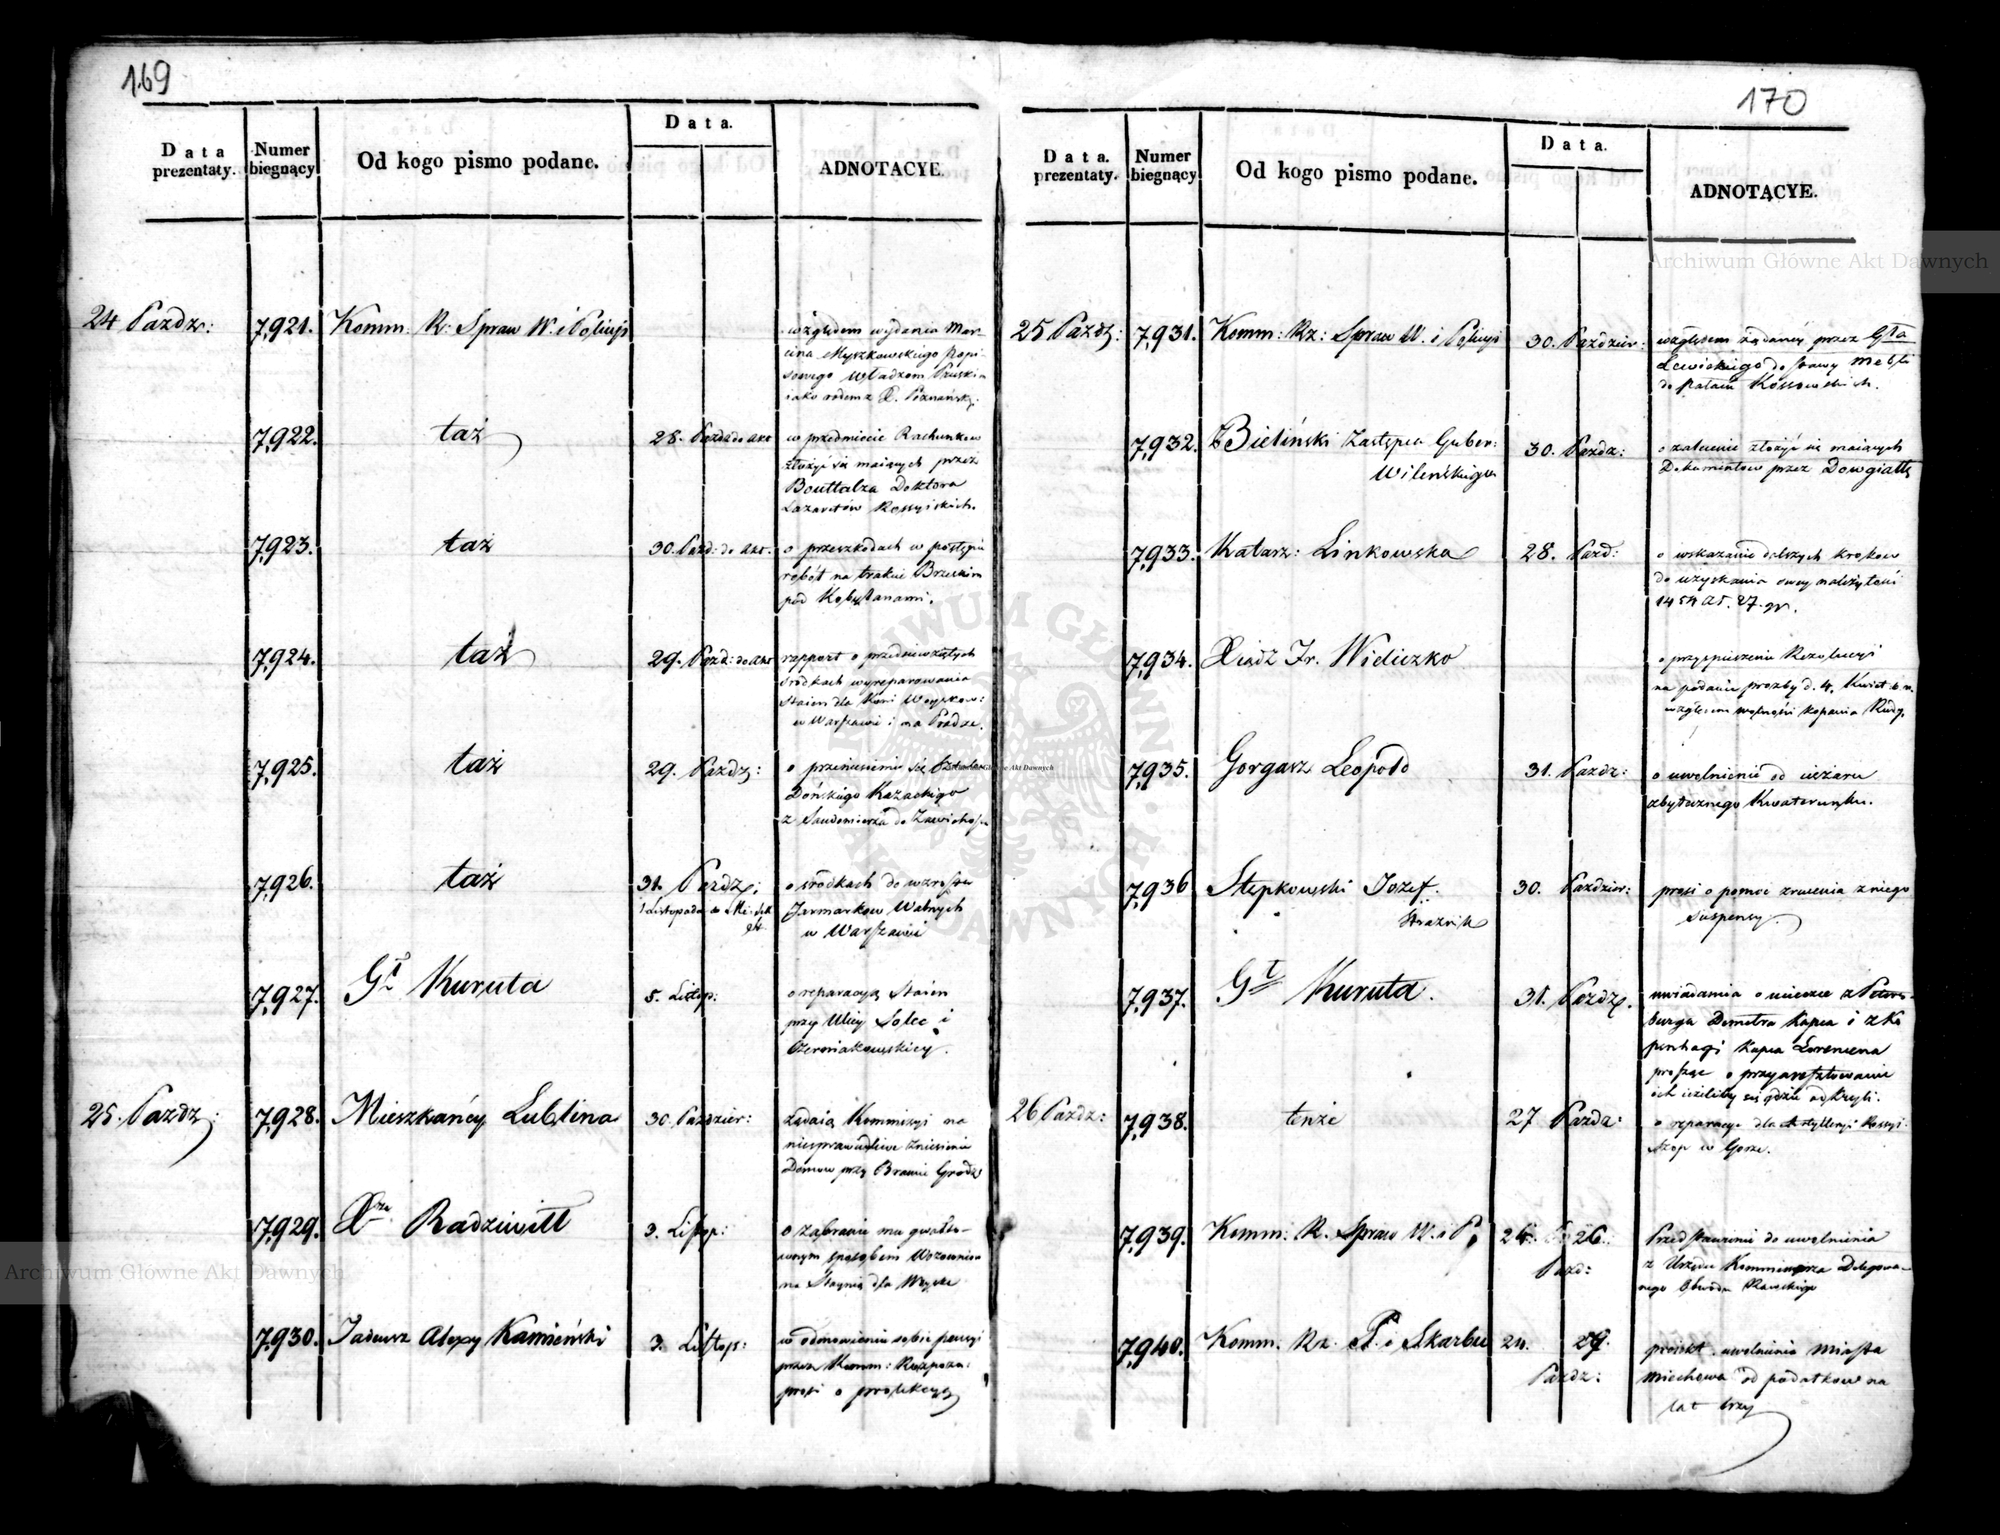 169
Data prezentaty.
Numer biegnący
Od kogo pismo podane.
Data.
ADNOTACYE.
24 Pazdz:
7,921. Komm: R: Spraw W. i Policyi
względem wydania Mar-
cina Myszkowskiego Popi-
sowego Władzom Pruskim
iako rodem z X. Poznańsk:
7,922. taż
28. Pazd do akt
w przedmiocie Rachunkow
złożyć się maiących przez
Bouttatza Doktora
Lazaretów Rossyiskich.
7,923. taż
30. Pazd: do akt.
o przeszkodach w postępie
robót na trakcie Brzeskim
pod Kobylanami.
7,924. taż
29. Pazd: do akt
rapport o przedsiewziętych
środkach wyreparowania
Staien dla Koni Woyskow:
w Warszawie i na Pradze.
7,925. taż
29. Pazdz:
o przeniesieniu się
Dońskiego Kazackiego
z Sandomierza do Zawichosta
7,926. taż
31. Pazdz:
1 Listopada do
o środkach do wzrostu
Jarmarkow Walnych
w Warszawie
7,927. Gł Kuruta
5. Listop:
o reparacyą Staien
przy Ulicy Solec i
Czerniakowskiey.
25. Pazdz:
7,928. Mieszkańcy Lublina
30. Pazdzier:
żądaią Kommissyi na
niesprawiedliwe Zniesienie
Domow przy Bramie Grodz
7,929. Xże Radziwiłł
3. Listop:
o zabranie mu gwałto-
wnym sposobem Wozowni
na Staynią dla Woyska
7,930. Tadeusz Alexy Kamieński
3. Listop:
w odmowieniu sobie pensyi
przez Komm: Rozpozn:
prosi o protekcyą
170
Data. prezentaty.
Numer biegnący
Od kogo pismo podane.
Data.
ADNOTACYE.
25 Pazdz:
7,931. Komm: Rz: Spraw W. i Policyi
30. Pazdzier:
względem żądaney przez Gła
Lewickiego dostawy Mebli
do Pałacu Kossowskich.
7,932. Z Bieliński Zastępca Guber:
Wileńskiego
30. Pazdz:
o zalecenie złożyć się maiących
Dokumentow przez Dowgiałłę
7,933. Katarz: Linkowska
28. Pazd:
o wskazanie dalszych krokow
do uzyskania swey należytości
1454 zł. 27. gr.
7,934. Xiądz Fr. Wieliczko
o przyspieszenie Rezolucyi
na podanie prozby d. 4. Kwiet: b.r.
względem wolności kopania Rudy.
7,935. Gorgasz Leopold
31. Pazdz:
o uwolnienie od ciężaru
zbytecznego Kwaterunku.
7,936 Stępkowski Jozef.
Strażnik
30. Pazdzier:
prosi o pomoc zniesienia z niego
suspensy.
7,937. Gł Kuruta.
31. Pazdz.
uwiadamia o ucieczce z Peters-
burga Demetra Kupca i z Ko
penhagi Kupca Lorencena
prosząc o przyaresztowanie
ich ieżeliby się gdzie odkryli.
26 Pazdz:
7,938. tenże
27 Pazdz:
o reparacye dla Artylleryi Rossyi
Szop w Gorze.
7,939. Komm: R. Spraw W. i P.
24. 26.
Pazd:
Przedstawienie do uwolnienia
z Urzędu Kommissarza Delegowa-
nego Obwodu Rawskiego
7,940. Komm. Rz. P. i Skarbu
24. 29.
Pazdz:
proiekt uwolnienia Miasta
Miechowa od podatkow na
lat trzy
Archiwum Główne Akt Dawnych
Archiwum Główne Akt Dawnych
ARCHIWUM GŁÓWNE AKT DAWNYCH